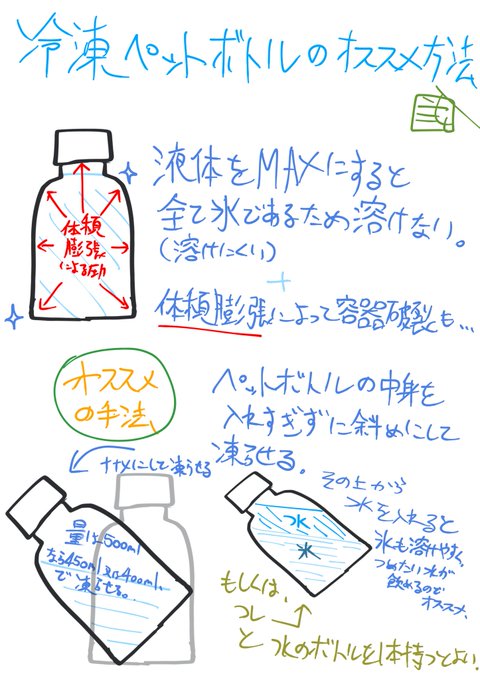 冷凍ペットボトルのオススメ方法
液体をMAXにすると
全て氷であるため溶けない。
(溶けにくい)
+
体積膨張によって容器破裂も…
体積
膨張
による圧力
オススメ
の手法
ペットボトルの中身を
入れすぎずに斜めにして
凍らせる。
ナナメにして凍らせる
量は500ml
なら450ml又は400ml
で凍らせる。
その上から
水を入れると
氷も溶けやすく、
つめたい水が
飲めるので
オススメ、
水
氷
もしくは、
コレ
と水のボトルを1本持つとよい。